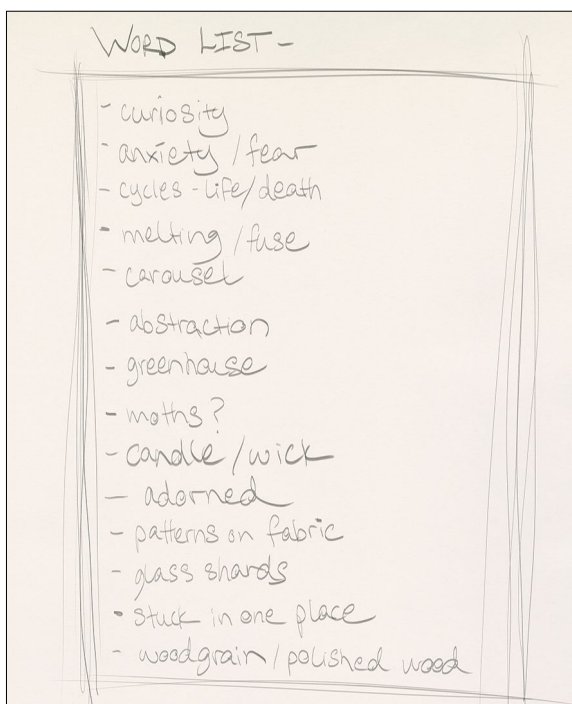 WORD LIST-
- curiosity
- anxiety / fear
- cycles - life/death
- melting / fuse
- carousel
- abstraction
- greenhouse
- moths?
- candle / wick
- adorned
- patterns on fabric
- glass shards
- stuck in one place
- woodgrain / polished wood